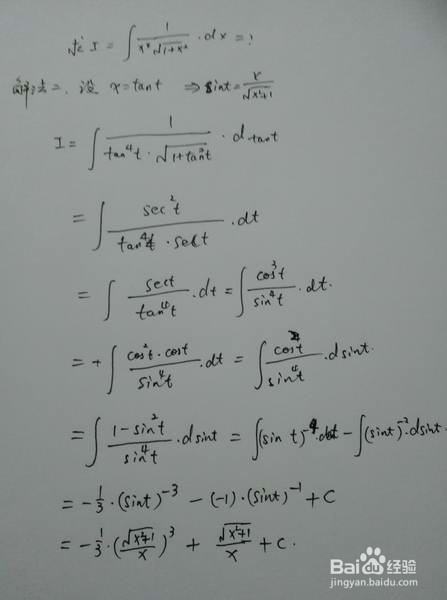 求 I = ∫ 1/(x⁴√(1+x²)) · dx = ?
解法二、设 x = tant ⇒ sint = x/√(x²+1)
I = ∫ 1/(tan⁴t · √(1+tan²t)) · d tant
= ∫ sec²t/(tan⁴t · sect) · dt
= ∫ sect/tan⁴t · dt = ∫ cos³t/sin⁴t · dt.
= + ∫ cos²t · cost/sin⁴t · dt = ∫ cos²t/sin⁴t · d sint.
= ∫ (1 - sin²t)/sin⁴t · d sint = ∫(sin t)⁻⁴ · dsint - ∫(sint)⁻² · dsint.
= -1/3 · (sint)⁻³ - (-1) · (sint)⁻¹ + C
= -1/3 · (√(x²+1)/x)³ + √(x²+1)/x + C.
Baidu 经验
jingyan.baidu.com